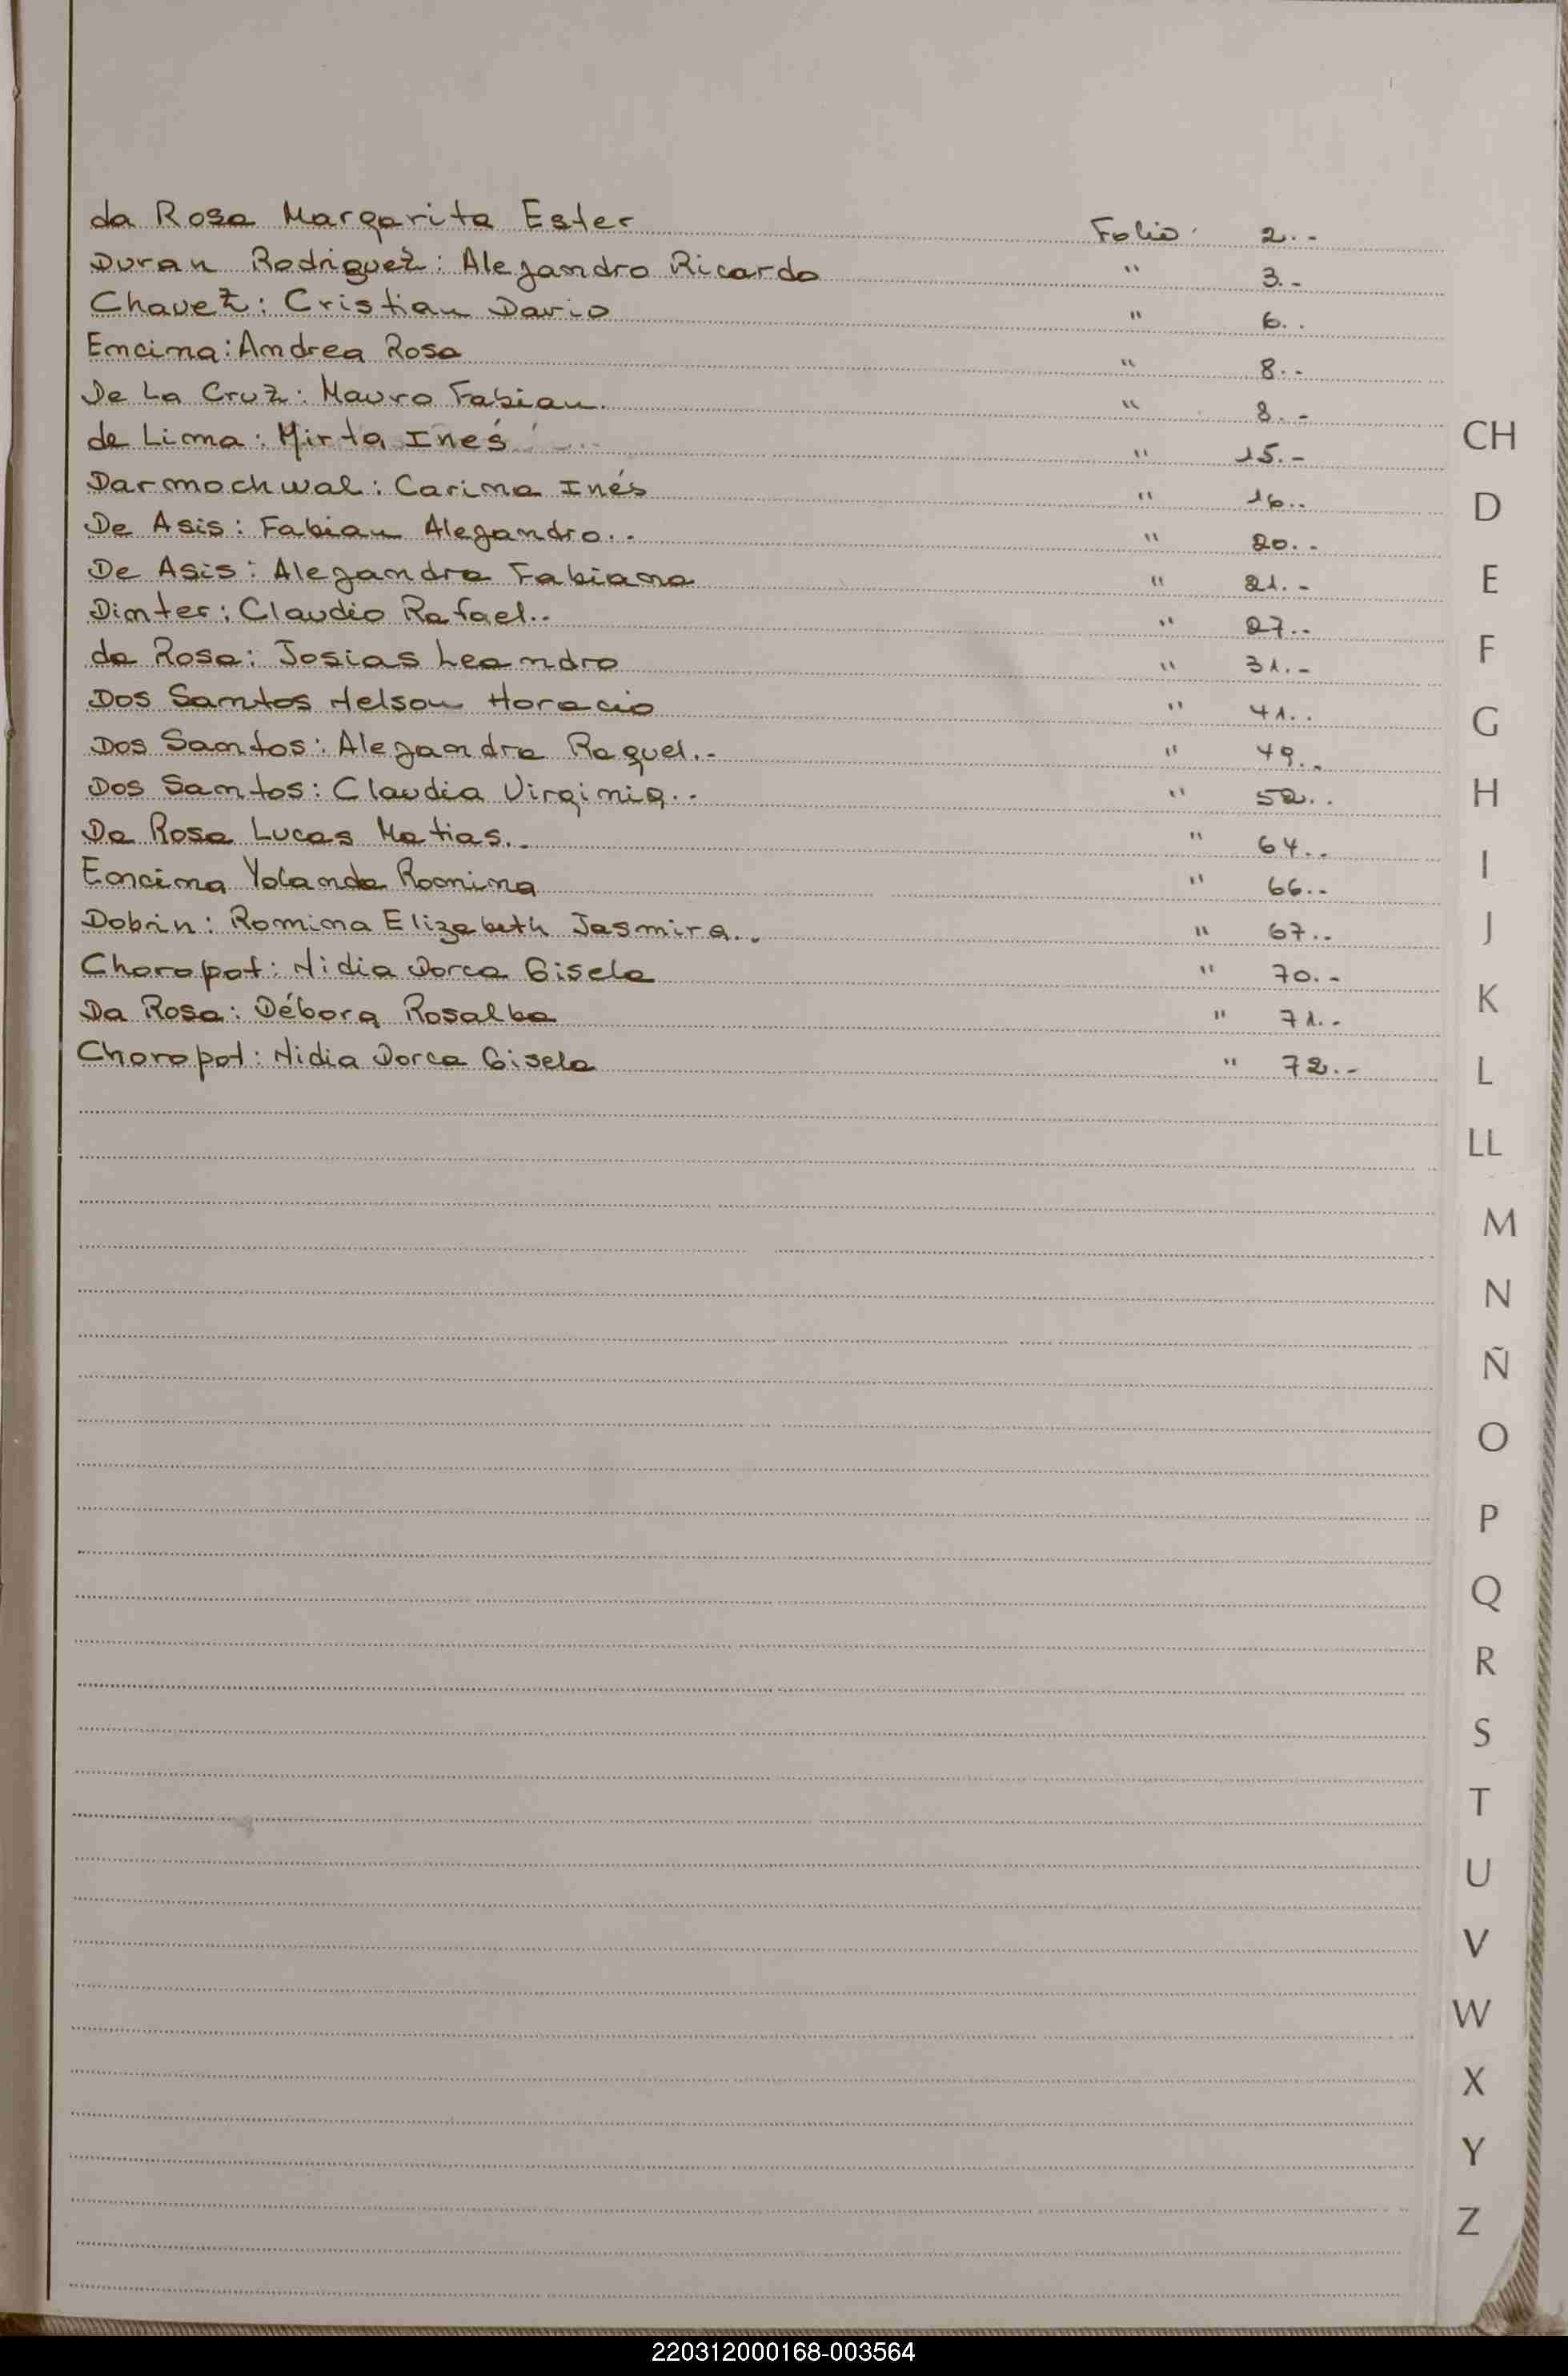 da Rosa Margarita Ester Folio 2.-
Duran Rodriguez: Alejandro Ricardo " 3.-
Chavez: Cristian Dario " 6..
Encina: Andrea Rosa " 8.-
De La Cruz: Mauro Fabian. " 8.-
de Lima: Mirta Inés " 15.-
Darmochwal: Carina Inés " 16..
De Asis: Fabian Alejandro.. " 20.-
De Asis: Alejandra Fabiana " 21.-
Dinter: Claudio Rafael.. " 27..
da Rosa: Josias Leandro " 31.-
Dos Santos Nelson Horacio " 41..
Dos Santos: Alejandra Raquel.- " 49..
Dos Santos: Claudia Virginia.. " 52..
Da Rosa Lucas Matias.. " 64..
Encina Yolanda Romina " 66..
Dobrin: Romina Elizabeth Jasmira.. " 67..
Choropot: Nidia Dorca Gisela " 70.-
Da Rosa: Débora Rosalba " 71.-
Choropot: Nidia Dorca Gisela " 72.-
CH
D
E
F
G
H
I
J
K
L
LL
M
N
Ñ
O
P
Q
R
S
T
U
V
W
X
Y
Z
220312000168-003564